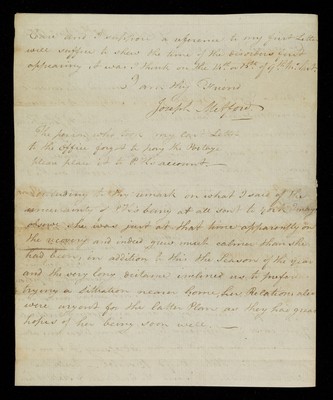 and I suppose a reference to my first letter
will suffice to shew the time of the disorders first
appearing it was I think on the 14th or 15th of
I am thy Friend
Joseph Metford
The person who took my last Letter
to the Office forgot to pay the Postage
Please place it to account. —
to the remark on what I said of the
being at all sent to
above, she was just at that time apparently on
the recovery and indeed grew much calmer than she
had been, in addition to this the Season of the year
and the very low inclined us to prefer
trying a situation nearer home, her Relations also
were anxious for the latter Plan as they had great
hopes of her being soon well. —